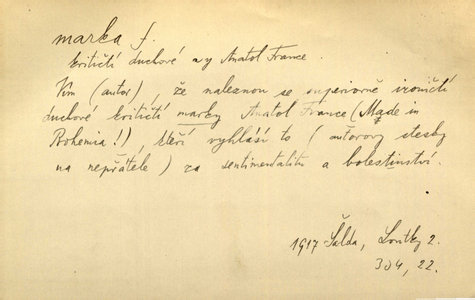 marka f.
kritičtí duchové à y Anatol France
Vím (autor), že naleznou se superiorně ironičtí
duchové kritičtí marky Anatol France (Made in
Bohemia!), kteří vyhlásí to (autorovy stesky
na nepřátele) za sentimentalitu a bolestínství.
1917 Šalda, Loutky 2.
304, 22.